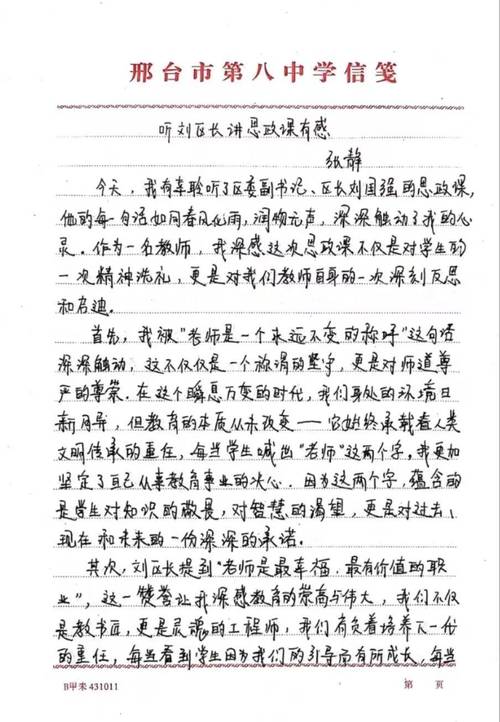 邢台市第八中学信笺
听刘区长讲思政课有感
张静
今天,我有幸聆听了区委副书记、区长刘国强的思政课,
他的每一句话如同春风化雨,润物无声,深深触动了我的心
灵。作为一名教师,我深感这次思政课不仅是对学生的
一次精神洗礼,更是对我们教师自身的一次深刻反思
和启迪.
首先,我被"老师是一个永远不变的称呼"这句话
深深触动,这不仅仅是一个称谓的坚守,更是对师道尊
严的尊崇.在这个瞬息万变的时代,我们身处的环境日
新月异,但教育的本质从未改变——它始终承载着人类
文明传承的重任,每当学生喊出"老师"这两个字,我更加
坚定了自己从事教育事业的决心.因为这两个字,蕴含的
是学生对知识的敬畏,对智慧的渴望,更是对过去、
现在和未来的一份深深的承诺.
其次,刘区长提到"老师是最幸福、最有价值的职
业",这一赞誉让我深感教育的崇高与伟大,我们不仅
是教书匠,更是灵魂的工程师,我们肩负着培养下一代
的重任,每当看到学生因为我们的引导而有所成长,每当
B甲未431011
第 页